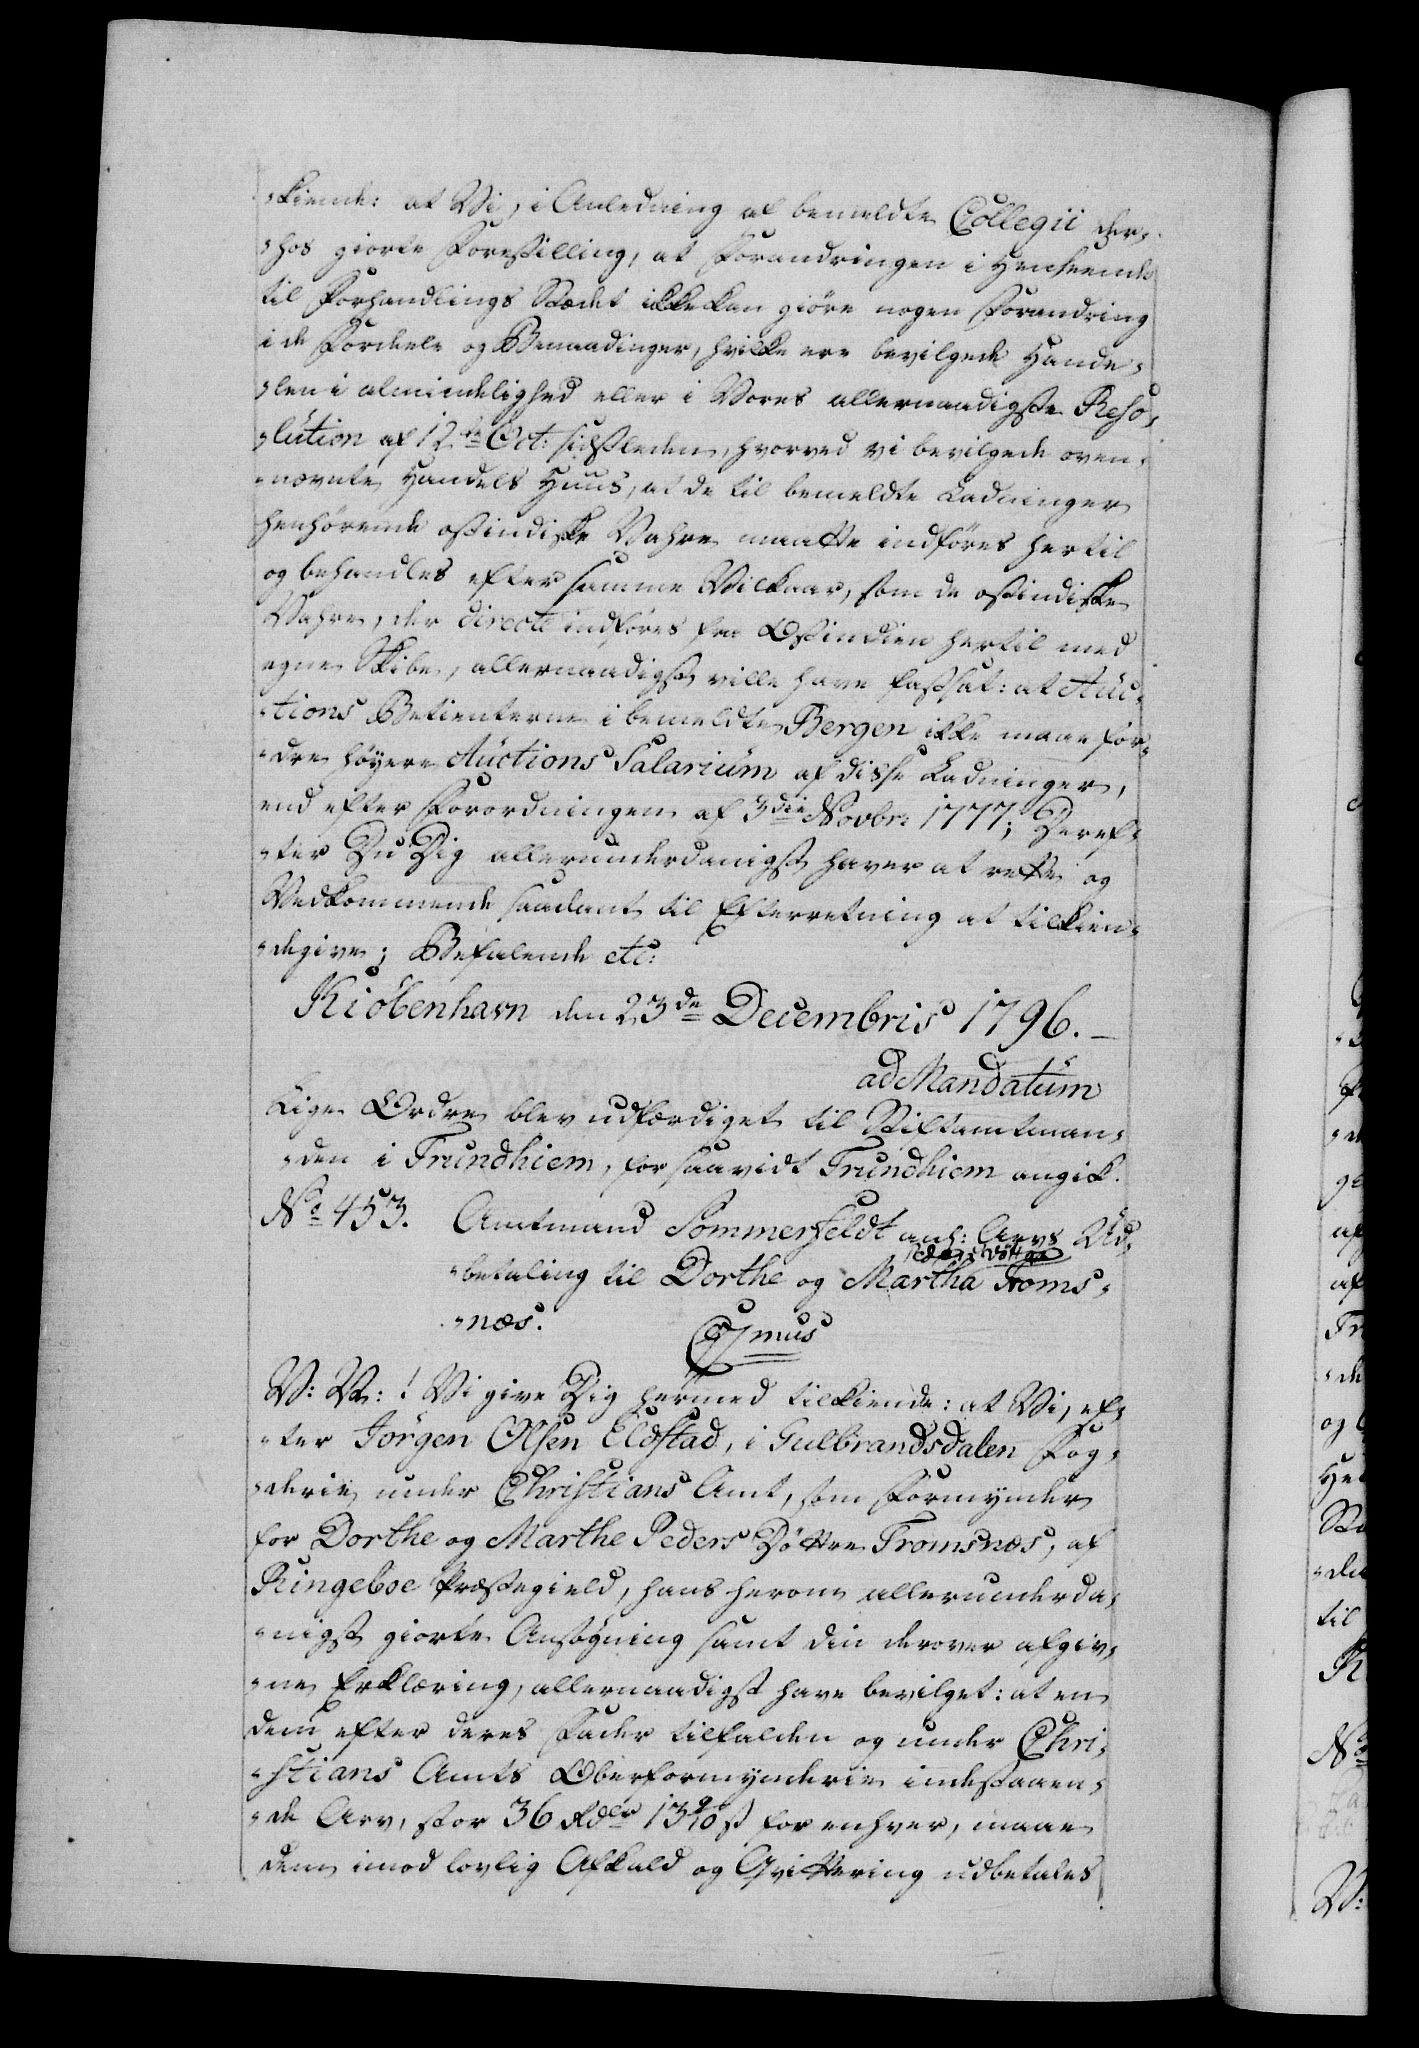 -kiende: at Vi, i Anledning af bemeldte Collegii der-
-hos giorte Forestilling, at Forandringen i Henseende
til Forhandlings Stædet ikke kan giöre nogen Forandring
i de Fordeele og Benaadinger, hvilke ere bevilgede Hande-
-len i almindelighed eller i Vores allernaadigste Reso-
-lution af 12te Oct: sidstleden, hvorved vi bevilgede oven-
-nævnte Handels Huus, at de til bemeldte Ladninger
henhörende ostindiske Vahre maatte indföres hertil
og behandles efter samme Vilkaar, som de ostindiske
Vahre, der directe indföres fra Ostindien hertil med
egne Skibe, allernaadigst ville have fastsat: at Auc-
-tions Betienterne i bemeldte Bergen ikke maae for-
-dre höyere Auctions Salarium af disse Ladninger,
end efter Forordningen af 3die Novbr: 1777; Deref-
-ter Du Dig allerunderdanigst haver at rette og
Vedkommende saadant til Efterretning at tilkien-
-degive; Befalende etc:
Kiöbenhavn den 23de Decembris 1796.
ad Mandatum
Lige Ordre blev udfærdiget til Stiftamtman-
-den i Trundhiem, for saavidt Trundhiem angik.
No 453. Amtmand Sommerfeldt anh: Arvs Ud-
-betaling til Dorthe og Martha Froms-
-næs.
V: V: ! Vi give Dig hermed tilkiende: at Vi, ef-
-ter Jörgen Olsen Eldstad, i Gulbrandsdalen Fog-
-derie under Christians Amt, som Formynder
for Dorthe og Marthe Peders Döttre Fromsnæs, af
Ringeboe Præstegield, hans herom allerunderda-
-nigst giorte Ansögning samt din derover afgiv-
-ne Erklæring, allernaadigst have bevilget: at en
dem efter deres Fader tilfalden og under Chri-
-stians Amts Oberformynderie indestaaen-
-de Arv, stor 36 Rdlr for enhver, maae
dem imod lovlig Afkald og Qvittering udbetales